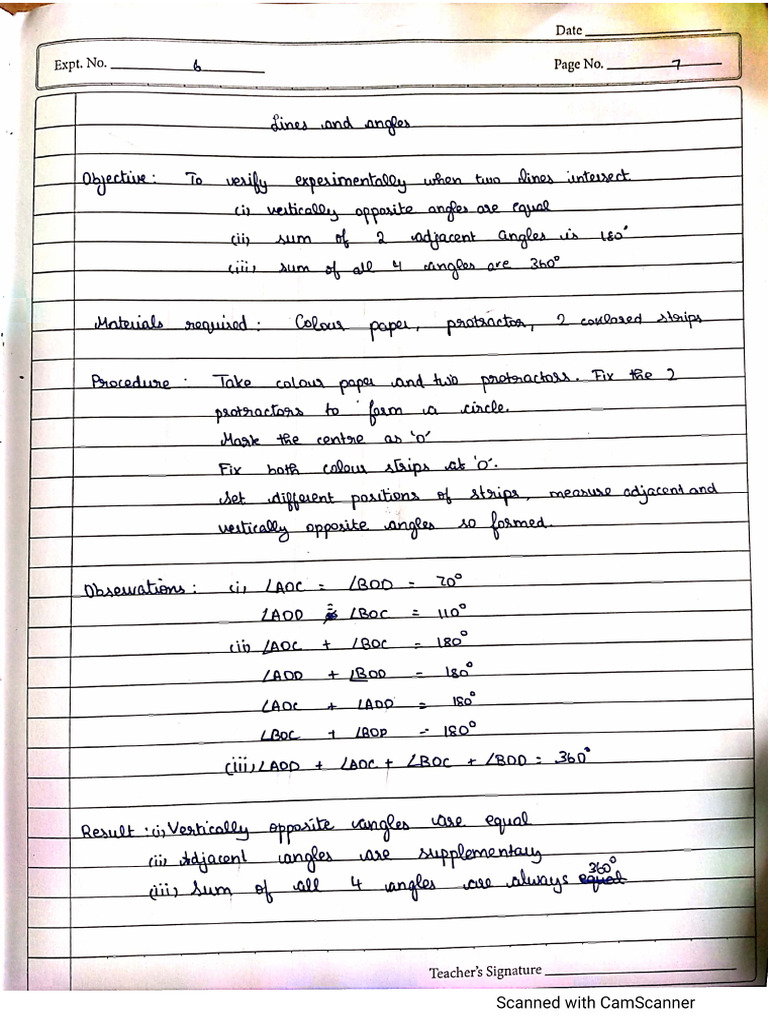 Date
Expt. No. 6 Page No. 7
Lines and angles
Objective: To verify experimentally when two lines intersect
(i) vertically opposite angles are equal
(ii) sum of 2 adjacent angles is 180°
(iii) sum of all 4 angles are 360°
Materials required: Colour paper, protractor, 2 coulared strips
Procedure: Take colour paper and two protractors. Fix the 2
protractors to form a circle.
Mark the centre as 'O'
Fix both colour strips at 'O'.
Set different positions of strips, measure adjacent and
vertically opposite angles so formed.
Observations: (i) ∠AOC = ∠BOD = 70°
∠AOD = ∠BOC = 110°
(ii) ∠AOC + ∠BOC = 180°
∠AOD + ∠BOD = 180°
∠AOC + ∠AOD = 180°
∠BOC + ∠BOD = 180°
(iii) ∠AOD + ∠AOC + ∠BOC + ∠BOD = 360°
Result: (i) Vertically opposite angles are equal
(ii) Adjacent angles are supplementary
(iii) Sum of all 4 angles are always equal 360°
Teacher's Signature
Scanned with CamScanner